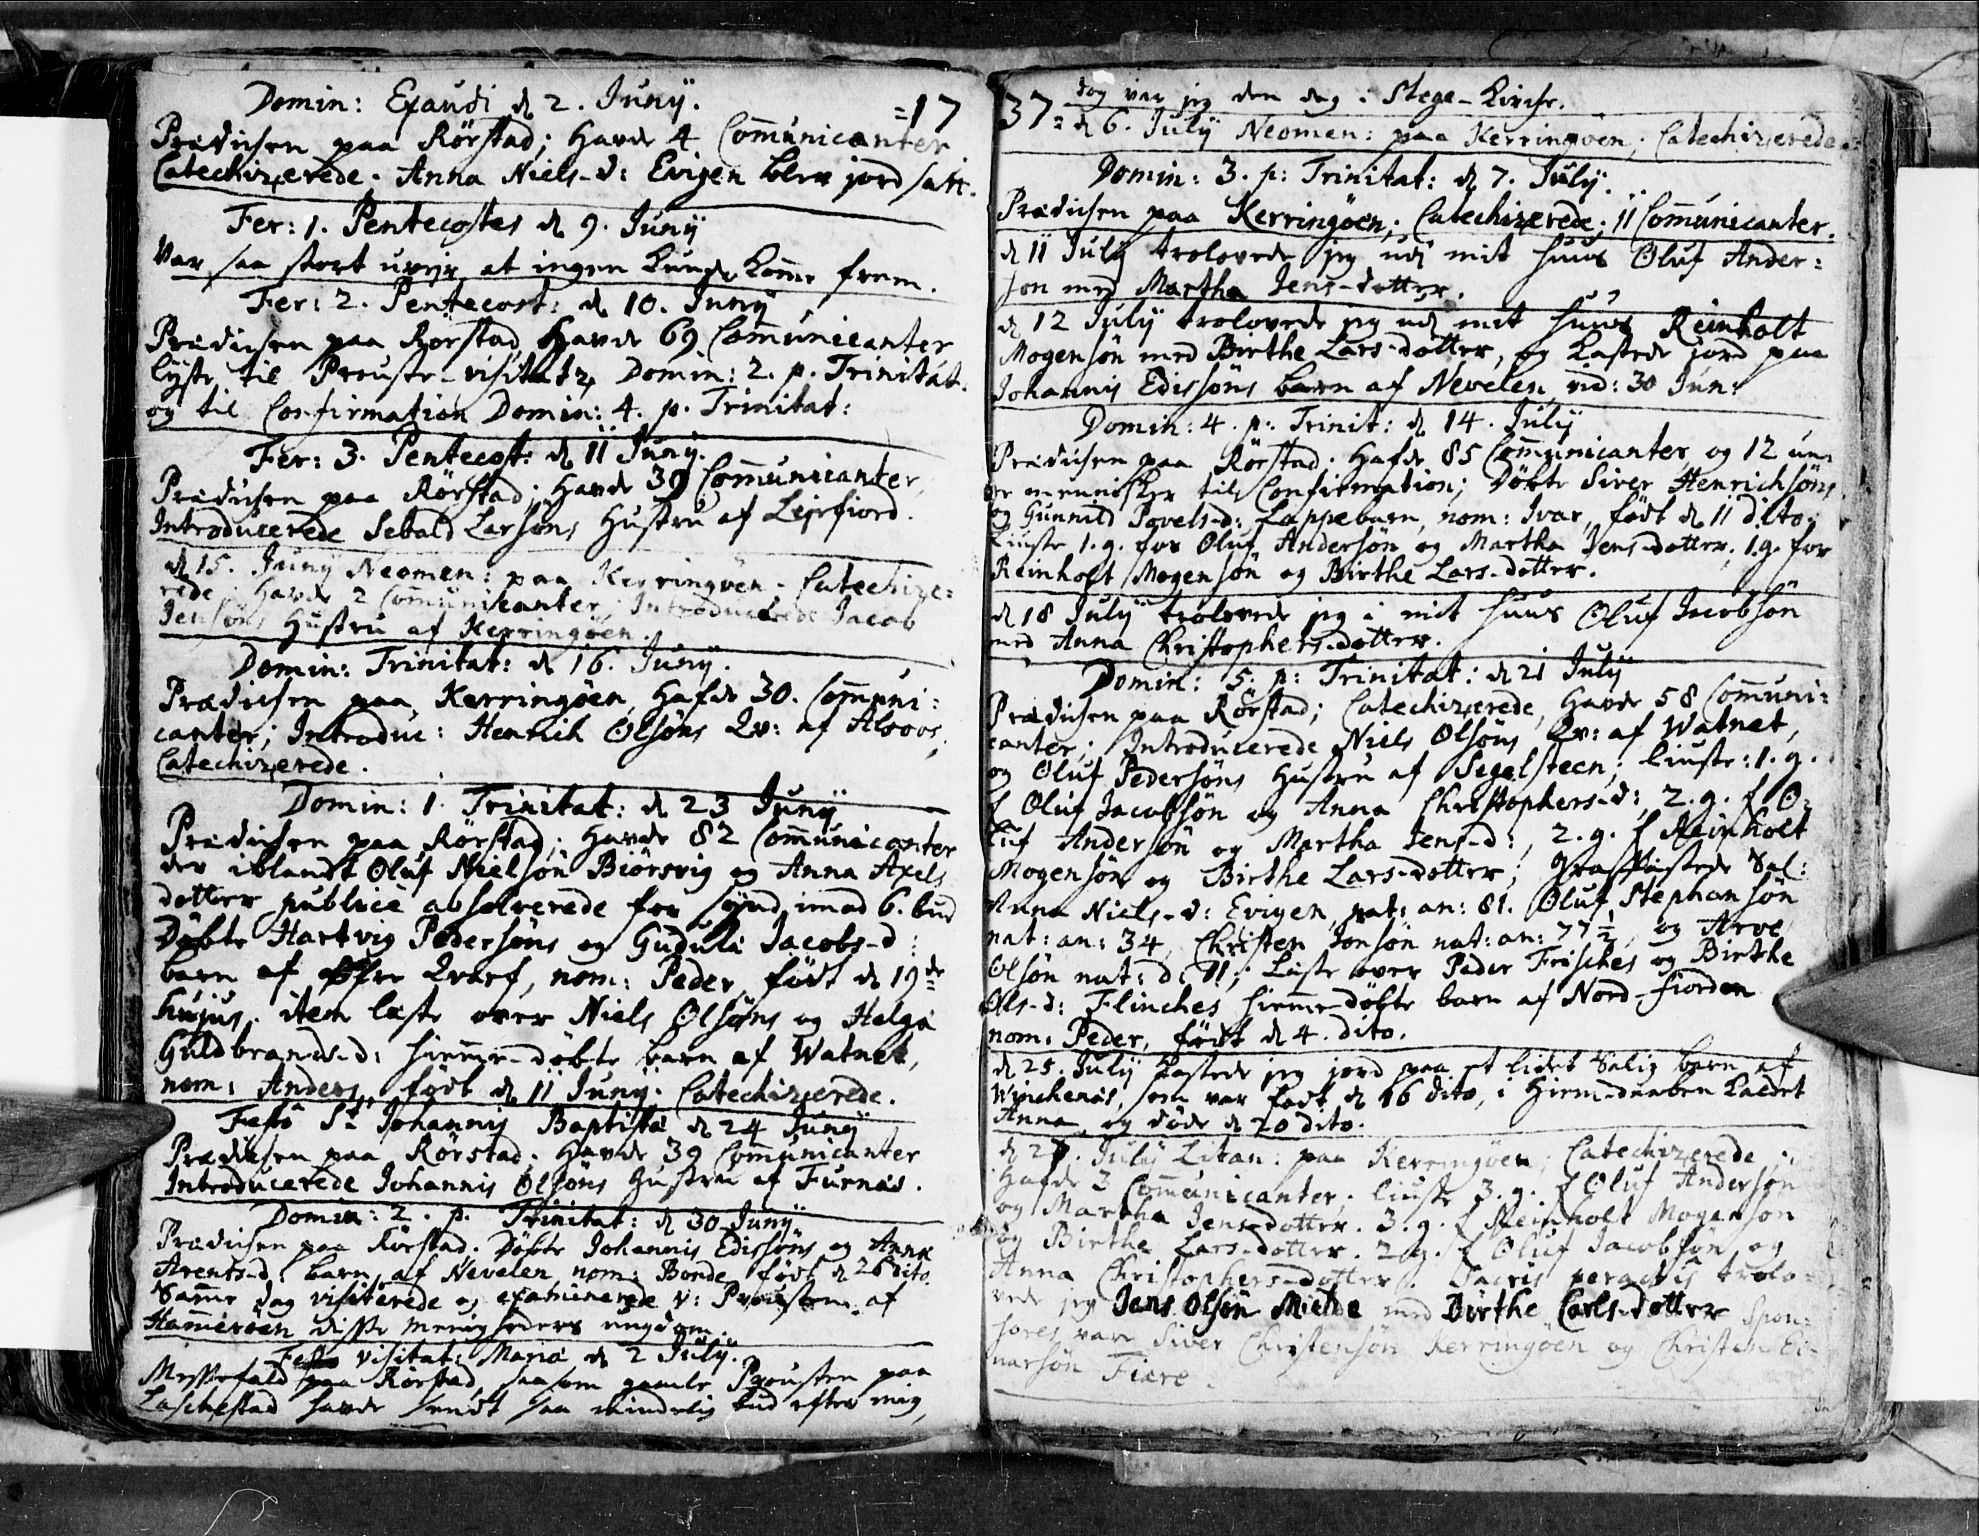 Domin: Exaudi d 2. Junÿ. =17
Prædichen paa Rörstad; Havde 4 Com̄unicanter
Catechizerede. Anna Niels-d: Evigen blev jord satt.
Fer: 1. Pentecostes d 9. Junÿ
Var saa stort uvejr at ingen kunde kom̄e frem.
Fer: 2. Pentecost: d 10. Junÿ
Prædichen paa Rörstad Havde 69 Com̄unicanter
lÿste til Prouste-visitatz Domin: 2. p. Trinitat.
og til Confirmation Domin: 4. p. Trinitat:
Fer: 3. Pentecost: d 11 Junÿ.
Prædichen paa Rörstad; Havde 39 Com̄unicanter,
Introducerede Sebald Larsøns Hustru af Lejrfiord.
d 15. Junÿ Neomen: paa Kerringøen; Catechize=
rede; Havde 2 Com̄unicanter; Introducerede Jacob
Jensøns Hustru af Kerringøen.
Domin: Trinitat: d 16. Junÿ.
Prædichen paa Kerringøen, Hafde 30. Com̄uni=
canter; Introduc: Henrich Olsøns Qv: af
Catechizerede.
Domin: 1. Trinitat: d 23 Junÿ
Prædichen paa Rörstad; Havde 82 Com̄unicanter
der iblandt Oluf Nielsøn Biörsvig og Anna Axels
dotter publicè absolverede for sÿnd imod 6. bud
Döbte Hartvig Pedersøns og Gudula Jacobs-d:
barn af Qvarf, nom: Peder, födt d 19de
hujus. item læste over Niels Olsøns og Helga
Guldbrands-d: hiem̄e-döbte barn af Watnet,
nom: Anders, födt d 11 Junÿ. Catechizerede.
Festo St Johannis Baptistæ d 24 Junÿ
Prædichen paa Rörstad. Havde 39 Com̄unicanter
Introducerede Johannis Olsøns Hustru af Furnæs.
Domin: 2. p. Trinitat: d 30 Junÿ.
Prædichen paa Rörstad. Döbte Johannis Edissøns og Anna
Arents-d: barn af Nevelen nom: Bonde födt d 26 dito.
Sam̄e dag visiterede og examinerede v: Prousten af
Ham̄erøen disse menigheders ungdom.
Festo visitat: Mariæ d 2 Julÿ.
Messefald paa Rörstad saasom gamle Prousten paa
havde sendt saa mindelig bud efter mig,
37= dog var jeg den dag i Stege-Kirche.
d 6. Julÿ Neomen: paa Kerringøen; Catechizerede
Domin: 3. p: Trinitat: d 7. Julÿ.
Prædichen paa Kerringøen; Catechizerede; 11 Com̄unicanter.
d 11 Julÿ trolovede jeg udi mit huus Oluf Ander=
søn med Martha Jens-dotter.
d 12 Julÿ trolovede jeg udi mit huus Reinholt
Mogensøn med Birthe Lars-dotter, og kastede jord paa
Johannis Edissøns barn af Nevelen vid: 30 Jun:
Domin: 4. p: Trinit: d 14. Julÿ
Prædichen paa Rörstad. Hafde 85 Com̄unicanter og 12 un=
ge mennisker til Confirmation; Döbte Siver Henrichsøns
og Gunnild Povels-d: Lappebarn, nom: Ivar, födt d 11 dito;
Liuste 1. g. for Oluf Andersøn og Martha Jens-dotter, 1. g. for
Reinholt Mogensøn og Birthe Lars-dotter.
d 18 Julÿ trolovede jeg i mit huus Oluf Jacobsøn
med Anna Christophers-dotter.
Domin: 5. p: Trinitat: d 21 Julÿ
Prædichen paa Rörstad; Catechizerede, Havde 58 Com̄uni=
canter; Introducerede Niels Olsøns Qv: af Watnet,
og Oluf Pedersøns Hustru af Segelsteen; liuste: 1. g.
f Oluf Jacobsøn og Anna Christophers-d:, 2. g. f. O=
luf Andersøn og Martha Jens-d:, 2. g. f Reinholt
Mogensøn og Birthe Lars-dotter; Sal:
Anna Niels-d: Evigen, nat: an: 81. Oluf Stephansøn
nat: an: 34, Christen Jonsøn nat: an: 77 ½, og Arve
Olsøn nat: d. 11; Læste over Peder Frisches og Birthe
Ols-d: Flinches hiem̄e-döbte barn af Nord-fiorden
nom: Peder, födt d 4. dito.
d 25. Julÿ kastede jeg jord paa et lidet Salig barn af
Winchenæs, som var födt d 16 dito, i Hiem̄-daaben kaldet
Anna, og döde d 20 dito.
d 27. Julÿ Litan: paa Kerringøen; Catechizerede;
Hafde 3 Com̄unicanter; liuste 3. g. f Oluf Andersøn
og Martha Jens-dotter. 3. g. f Reinholt Mogensøn
og Birthe Lars-dotter. 2. g. f Oluf Jacobsøn og
Anna Christophers-dotter. Sacris peractis trolo=
vede jeg Jens Olsøn Mielde med Birthe Carls-dotter Spon=
sores vare Siver Christensøn Kerringøen og Christen Ei=
narsøn Fiære.